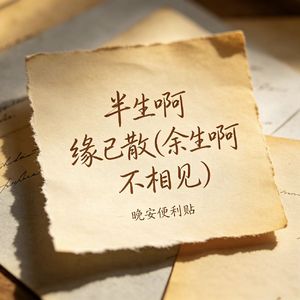 半生啊
缘已散(余生啊
不相见)
晚安便利贴